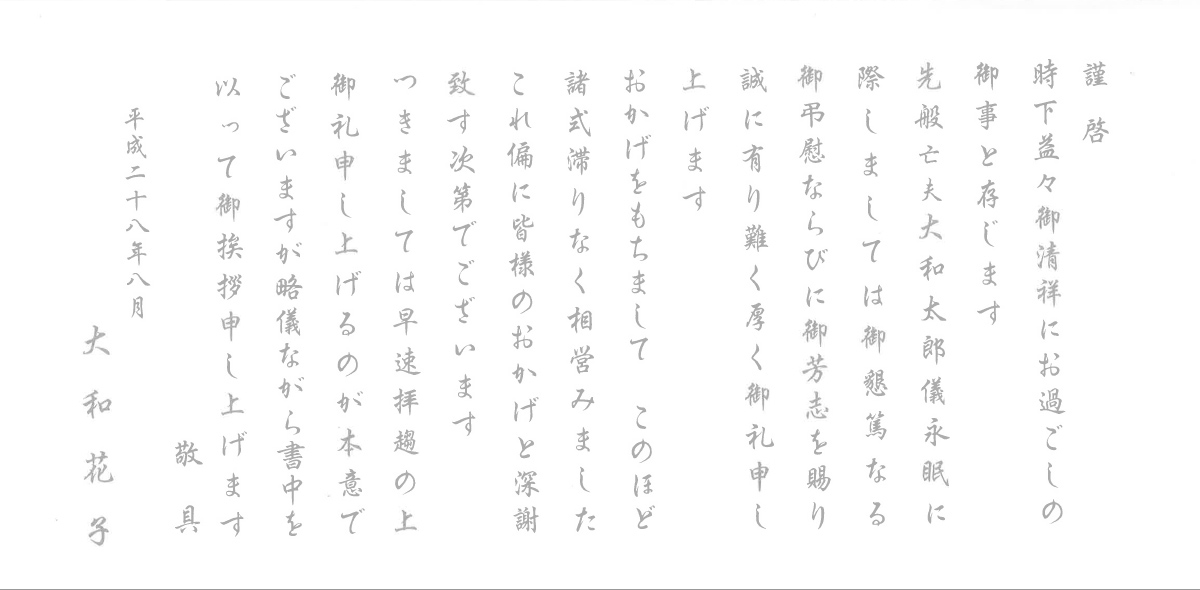 謹啓
時下益々御清祥にお過ごしの
御事と存じます
先般亡夫大和太郎儀永眠に
際しましては御懇篤なる
御弔慰ならびに御芳志を賜り
誠に有り難く厚く御礼申し
上げます
おかげをもちまして このほど
諸式滞りなく相営みました
これ偏に皆様のおかげと深謝
致す次第でございます
つきましては早速拝趨の上
御礼申し上げるのが本意で
ございますが略儀ながら書中を
以って御挨拶申し上げます
敬具
平成二十八年八月
大和花子